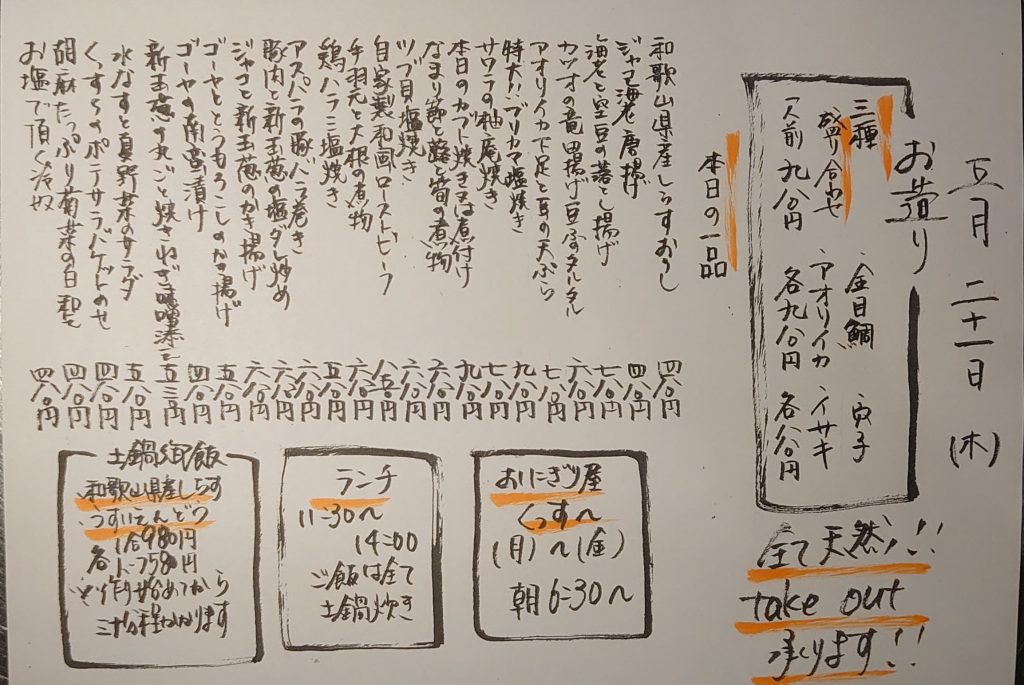 五月二十一日(木)
お造り
三種盛り合わせ 一人前 九八〇円
金目鯛 アオリイカ 各九八〇円
真子 イサキ 各八八〇円
全て天然!!
take out
承ります!!
本日の一品
和歌山県産しらすおろし 四八〇円
ジャコ海老唐揚げ 四八〇円
海老と空豆の落とし揚げ 七八〇円
カツオの竜田揚げ豆腐のタルタル 六八〇円
アオリイカ下足と耳の天ぷら 七八〇円
特大!!ブリカマ塩焼き 九八〇円
サワラの柚庵焼き 七八〇円
本日のカブト焼き又は煮付け 九八〇円
なまり節と蕗と筍の煮物 六八〇円
ツブ貝塩焼き 六八〇円
自家製和風ローストビーフ 八五〇円
手羽元と大根の煮物 六八〇円
鶏ハラミ塩焼き 五八〇円
アスパラの豚バラ巻き 六八〇円
豚肉と新玉葱の塩ダレ炒め 六八〇円
ジャコと新玉葱のかき揚げ 六八〇円
ゴーヤととうもろこしのかき揚げ 五八〇円
ゴーヤの南蛮漬け 四八〇円
新玉葱の丸ごと焼きねぎ味噌添え 五三〇円
水なすと夏野菜のサラダ 五八〇円
くっすぅのポテサラバケットのせ 四八〇円
胡麻たっぷり菊菜の白和え 四八〇円
お塩で頂く冷奴 四八〇円
おにぎり屋
くっす〜
(月)〜(金)
朝6:30〜
ランチ
11:30〜
14:00
ご飯は全て
土鍋炊き
土鍋御飯
和歌山県産しらす
うすいえんどう
1合980円
各1人つ580円
※作り始めてから
三十分程かかります